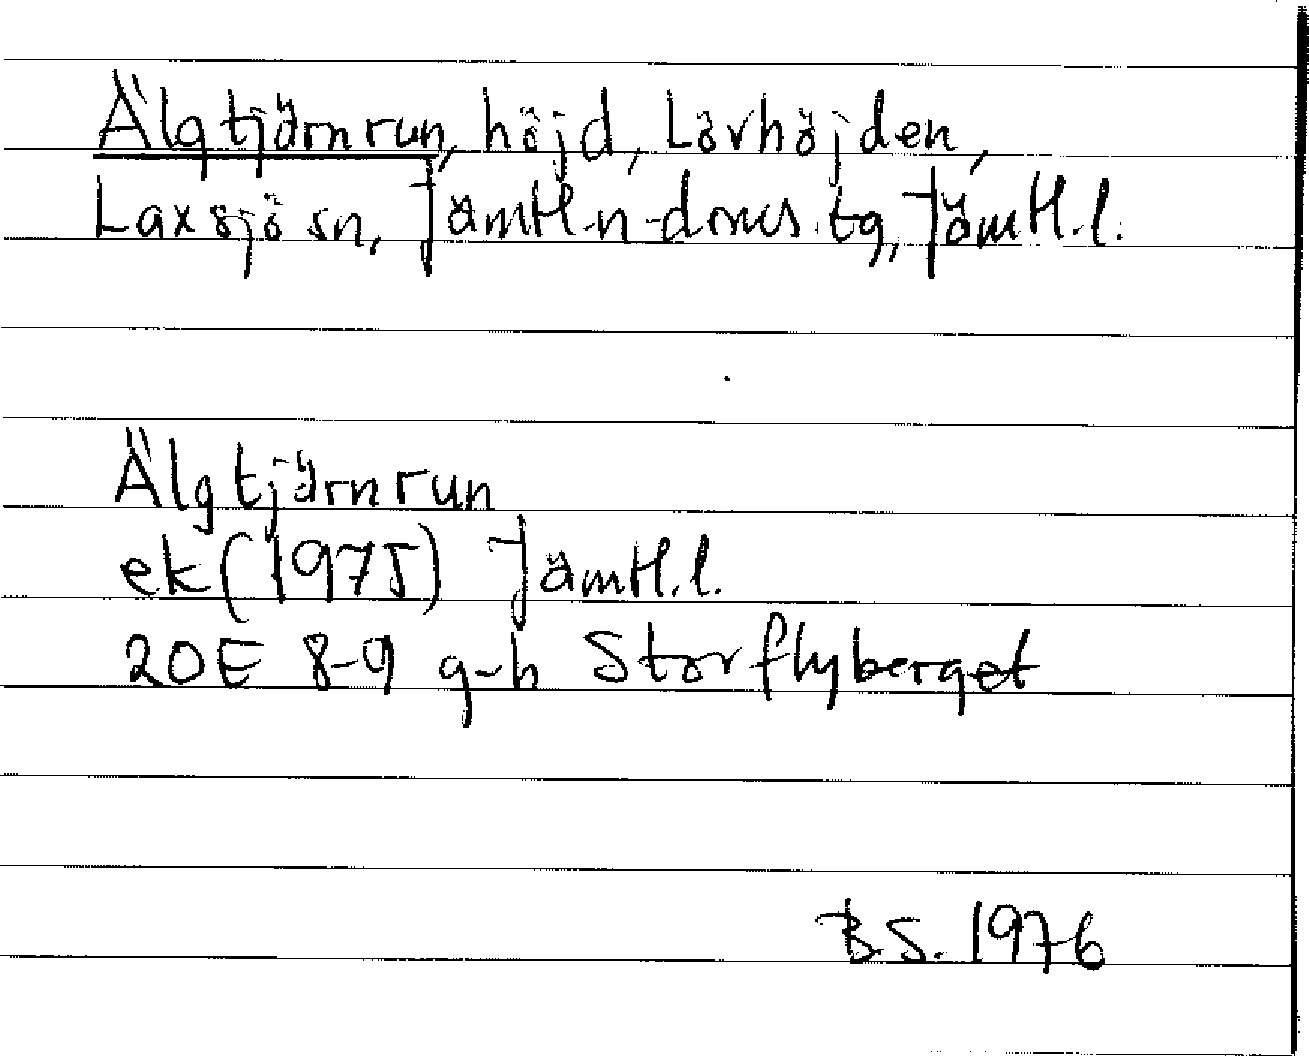 Älgtjärnrun, höjd, Lövhöjden,
Laxsjö sn, Jämtl.n-doms.tg, Jämtl.l.
Älgtjärnrun
ek(1975) Jämtl.l.
20E 8-9 g-h Storflyberget
B.S. 1976